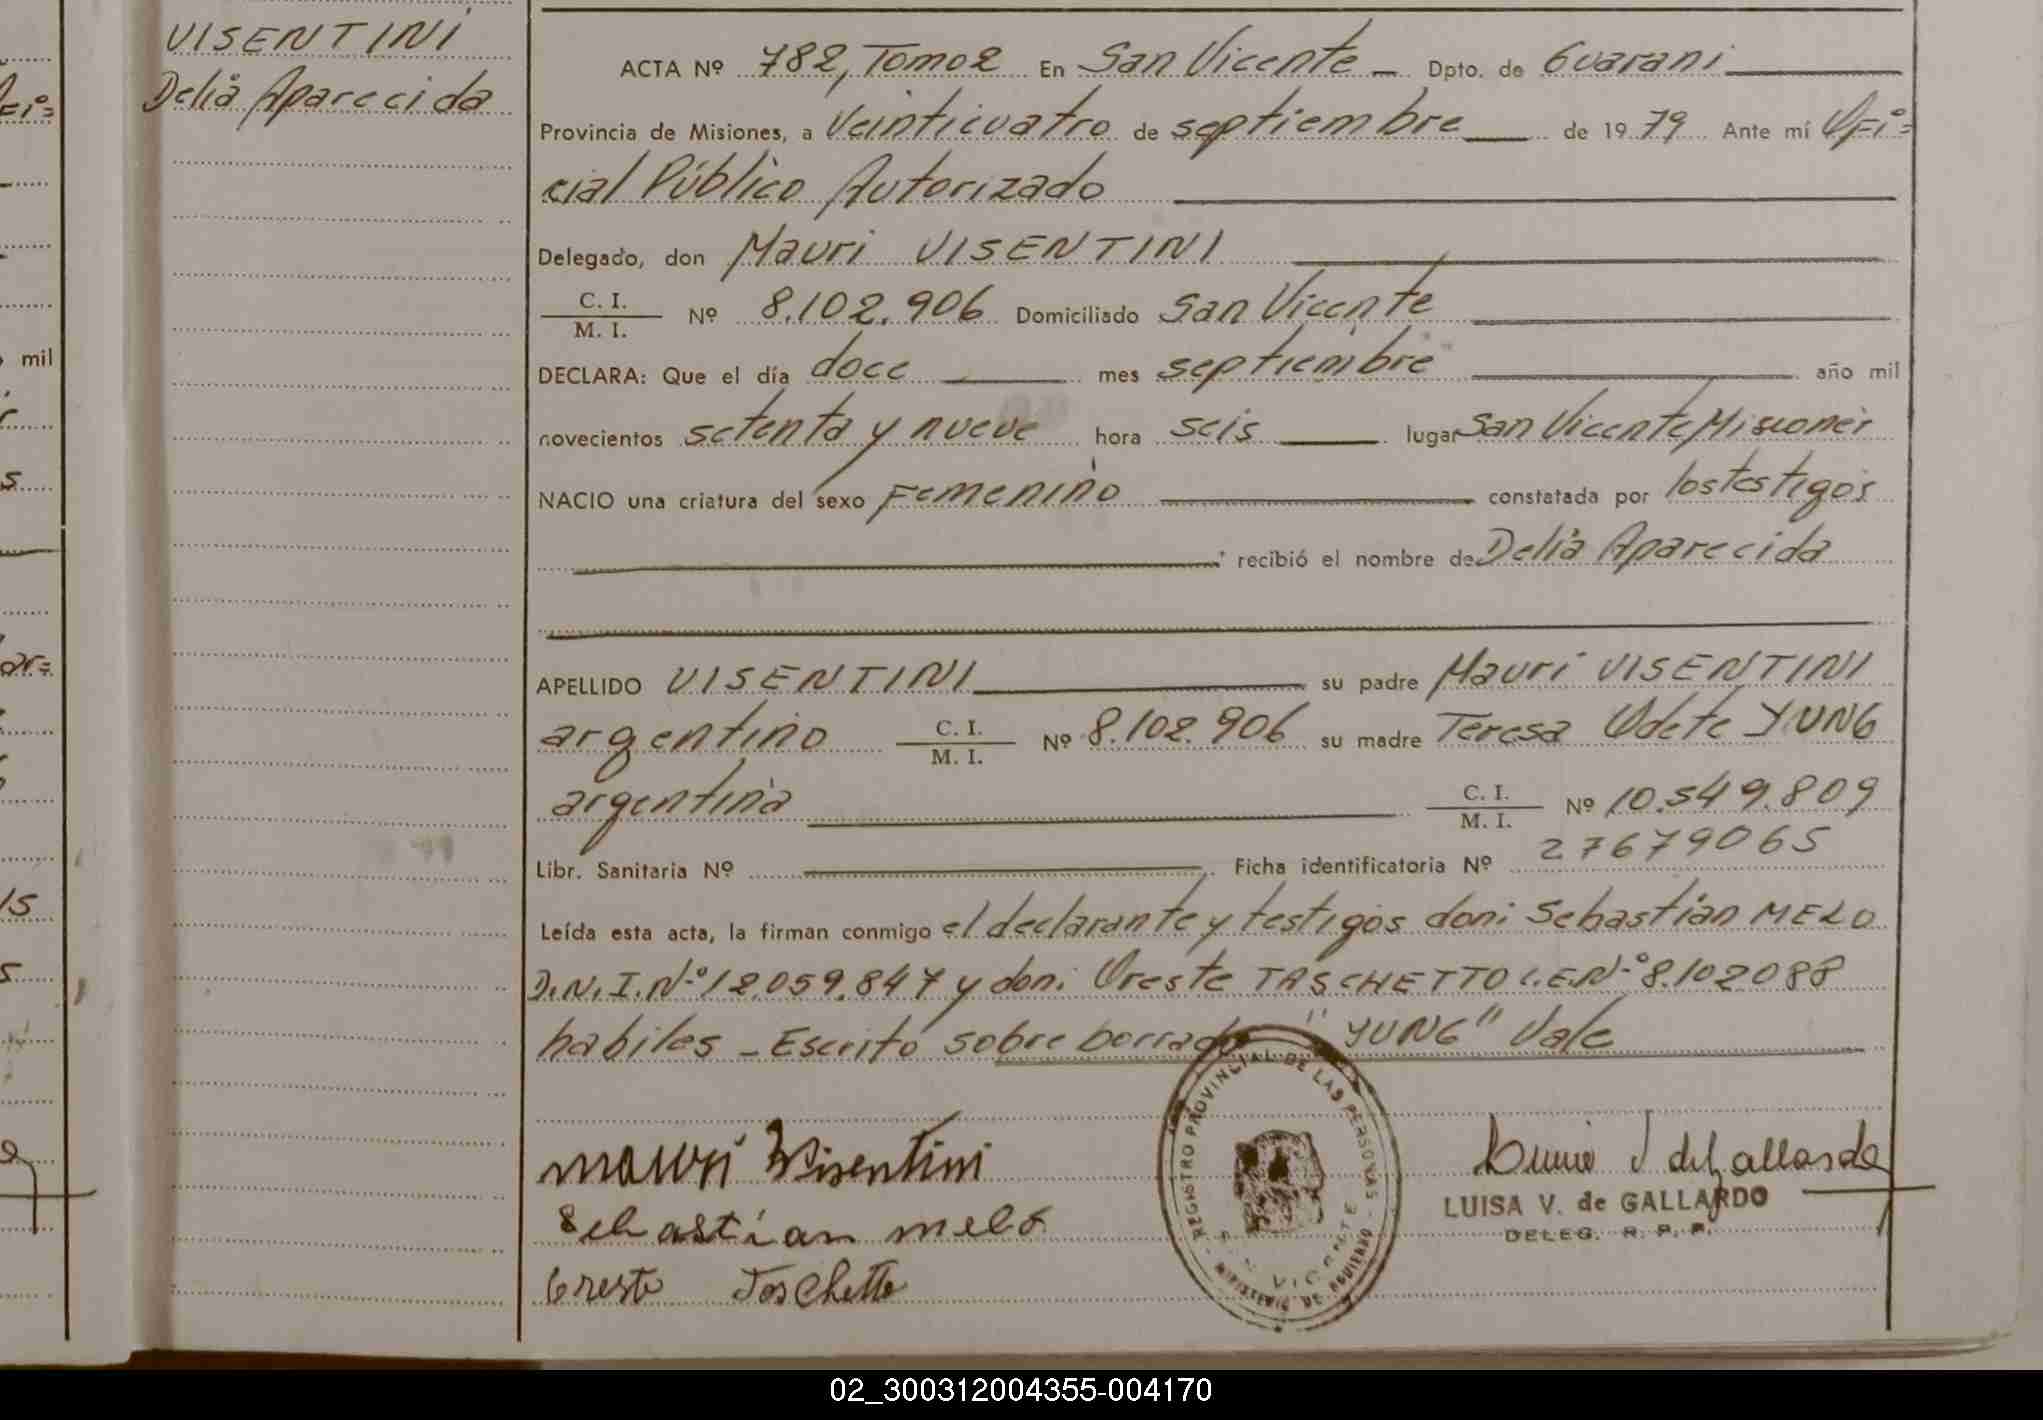 VISENTINI
Delia Aparecida
ACTA Nº 782, Tomo 2 En San Vicente Dpto. de Guarani
Provincia de Misiones, a veinticuatro de septiembre de 1979 Ante mí Ofi=
cial Público Autorizado
Delegado, don Mauri VISENTINI
C. I.
M. I. Nº 8.102.906 Domiciliado San Vicente
DECLARA: Que el día doce mes septiembre año mil
novecientos setenta y nueve hora seis lugar San Vicente Misiones
NACIO una criatura del sexo Femenino constatada por los testigos
recibió el nombre de Delia Aparecida
APELLIDO VISENTINI su padre Mauri VISENTINI
argentino C. I. M. I. Nº 8.102.906 su madre Teresa Odete YUNG
argentina C. I. M. I. Nº 10.549.809
Libr. Sanitaria Nº Ficha identificatoria Nº 27679065
Leída esta acta, la firman conmigo el declarante y testigos don: Sebastián MELO
D.N.I. Nº 12.059.847 y don: Oreste TASCHETTO L.E. Nº 8.102088
habiles - Escrito sobre borrado "YUNG" Vale
REGISTRO PROVINCIAL DE LAS PERSONAS
MINISTERIO DE GOBIERNO
S. VICENTE
mauri Visentini
Sebastían melo
Oreste Taschetto
LUISA V. de GALLARDO
DELEG. R. P. P.
mil
02_300312004355-004170